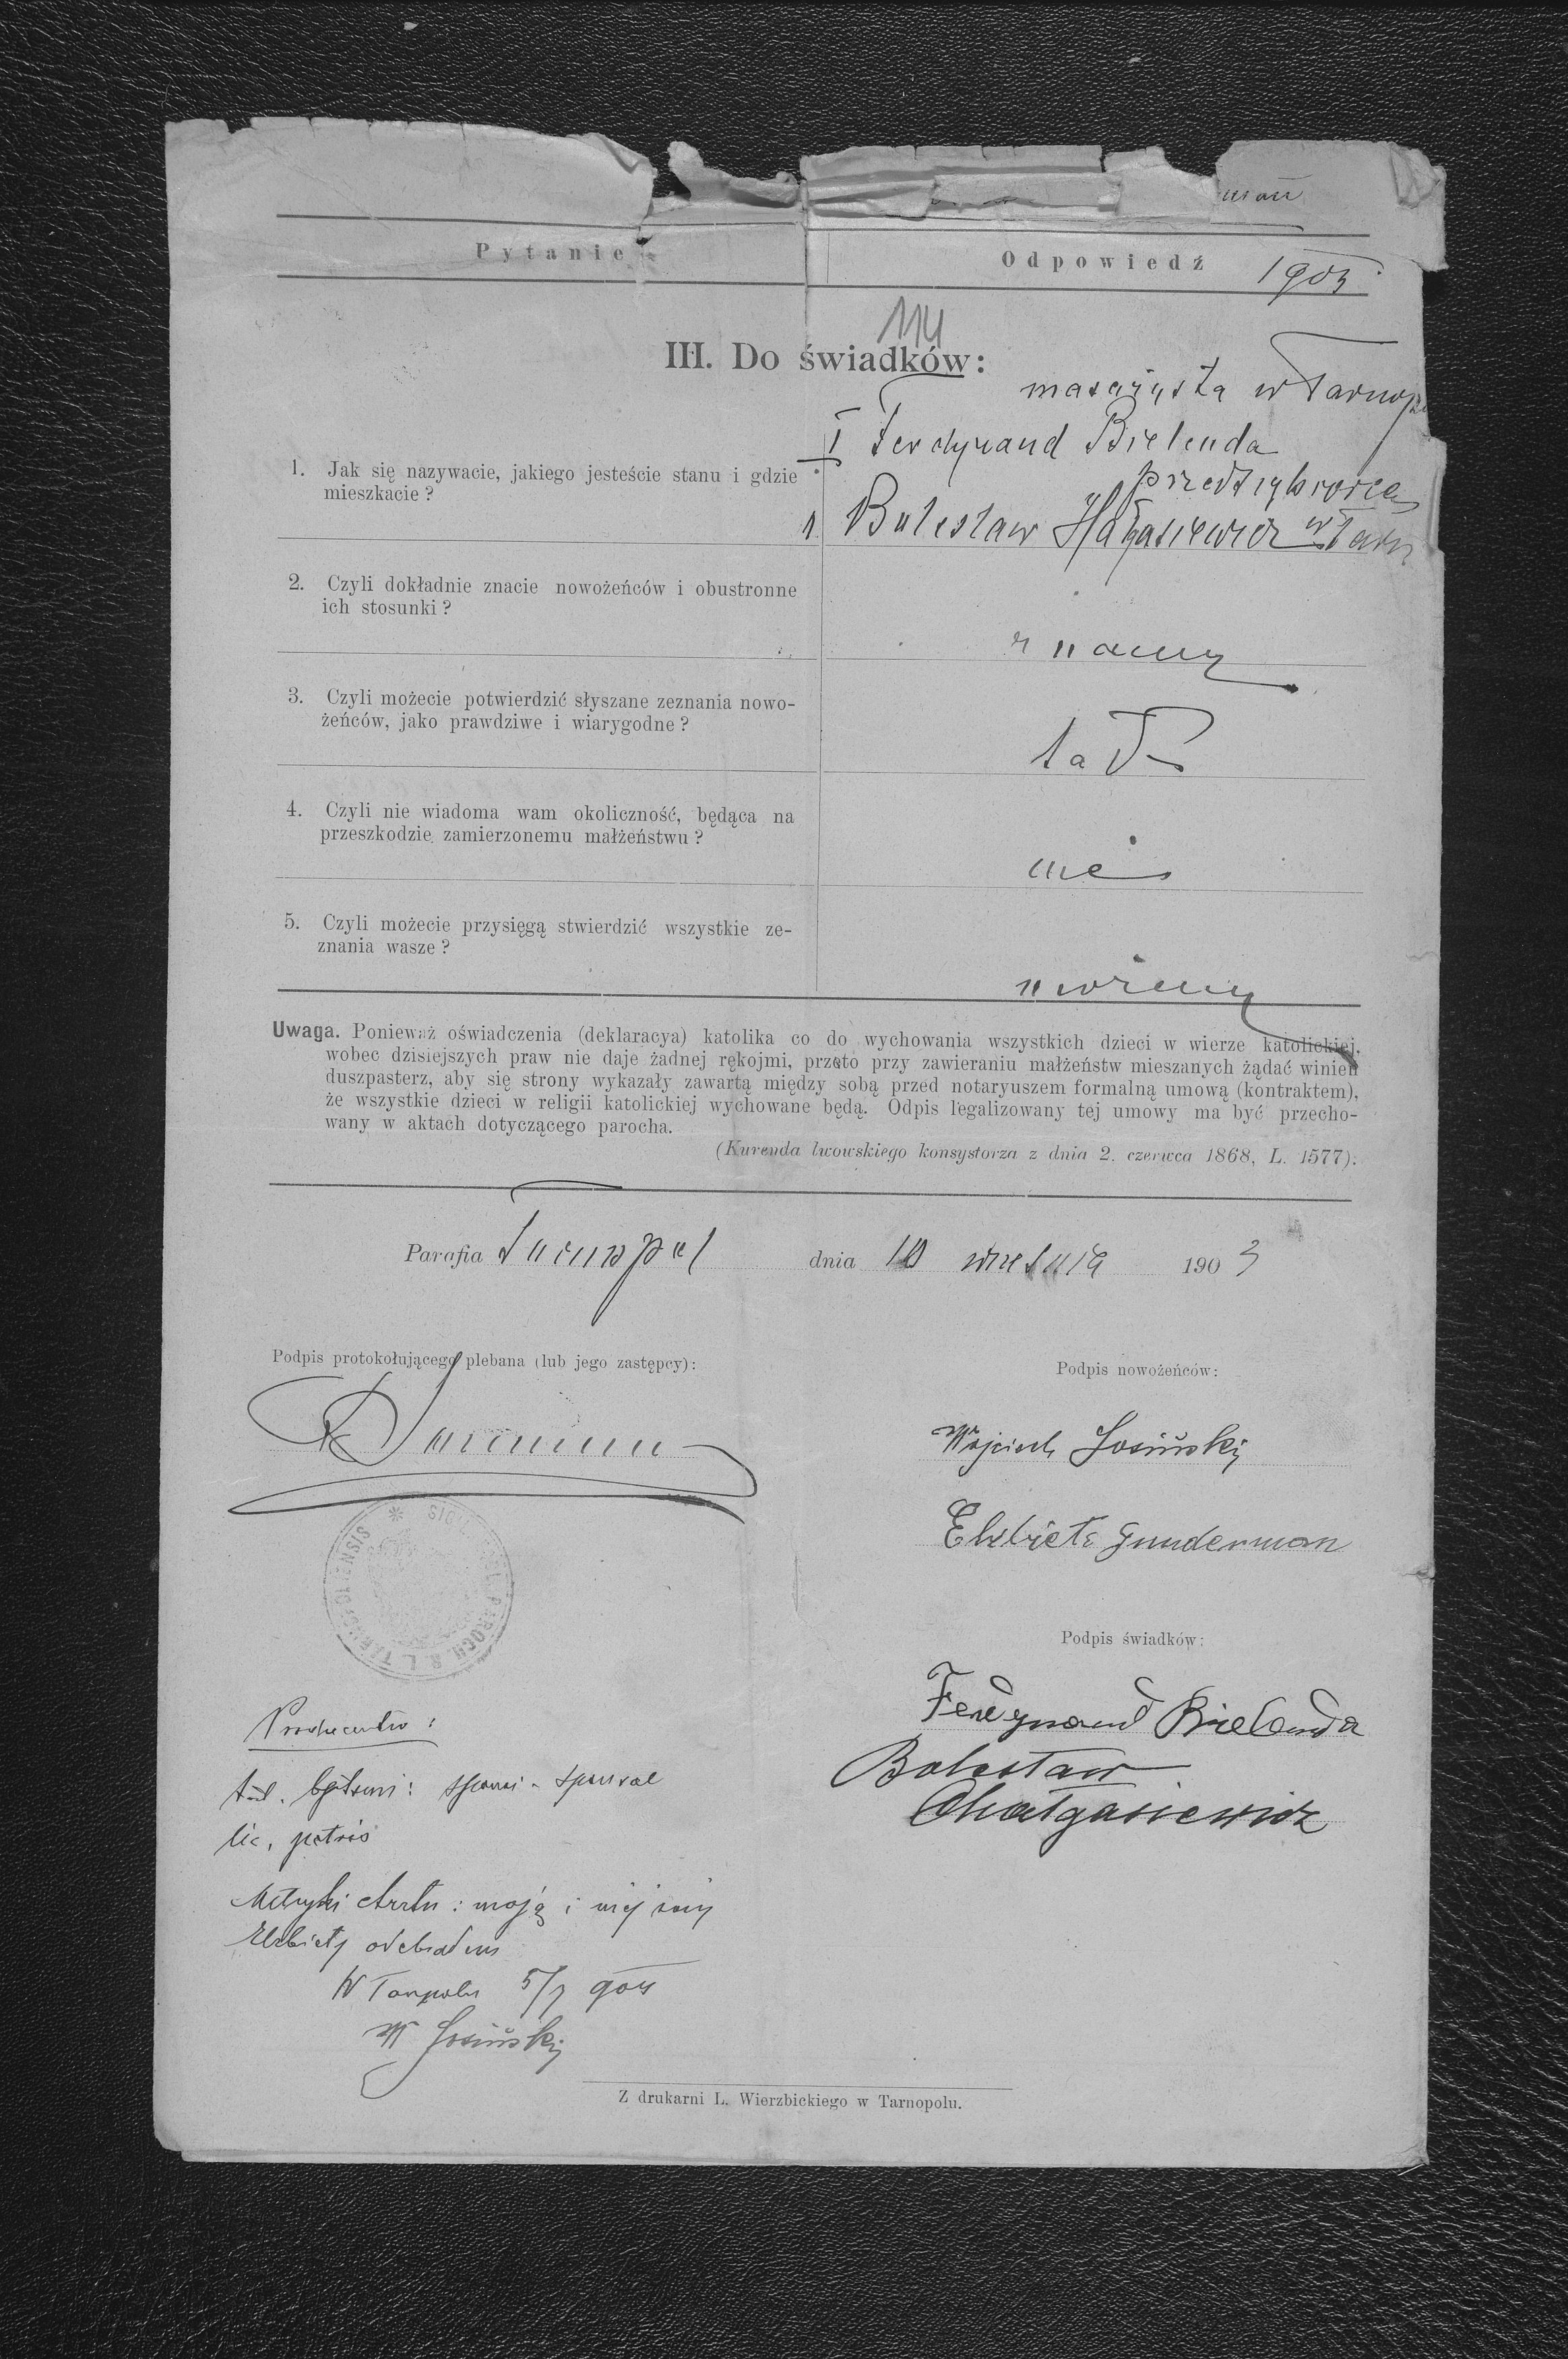 Pytanie
Odpowiedź
1903
114
III. Do świadków:
w Tarnop
1. Jak się nazywacie, jakiego jesteście stanu i gdzie
mieszkacie?
I Ferdynand Bielenda
przedsiębiorca
Bolesław Hałgasiewicz w Tarn
2. Czyli dokładnie znacie nowożeńców i obustronne
ich stosunki?
znamy
3. Czyli możecie potwierdzić słyszane zeznania nowo-
żeńców, jako prawdziwe i wiarygodne?
tak
4. Czyli nie wiadoma wam okoliczność, będąca na
przeszkodzie zamierzonemu małżeństwu?
nie
5. Czyli możecie przysięgą stwierdzić wszystkie ze-
znania wasze?
możemy
Uwaga. Ponieważ oświadczenia (deklaracya) katolika co do wychowania wszystkich dzieci w wierze katolickiej,
wobec dzisiejszych praw nie daje żadnej rękojmi, przeto przy zawieraniu małżeństw mieszanych żądać winien
duszpasterz, aby się strony wykazały zawartą między sobą przed notaryuszem formalną umową (kontraktem),
że wszystkie dzieci w religii katolickiej wychowane będą. Odpis legalizowany tej umowy ma być przecho-
wany w aktach dotyczącego parocha.
(Kurenda lwowskiego konsystorza z dnia 2. czerwca 1868, L. 1577).
Parafia Tarnopol dnia 10 września 1903
Podpis protokołującego plebana (lub jego zastępcy):
Podpis nowożeńców:
Wojciech Josiński
Elżbieta Gunderman
Podpis świadków:
Ferdynand Bielenda
Bolesław
Chałgasiewicz
lic. patris
Metryki chrztu: moją i mej żony
Elżbiety odebrałem
W Tarnopolu 5/7 904
W Josiński
Z drukarni L. Wierzbickiego w Tarnopolu.